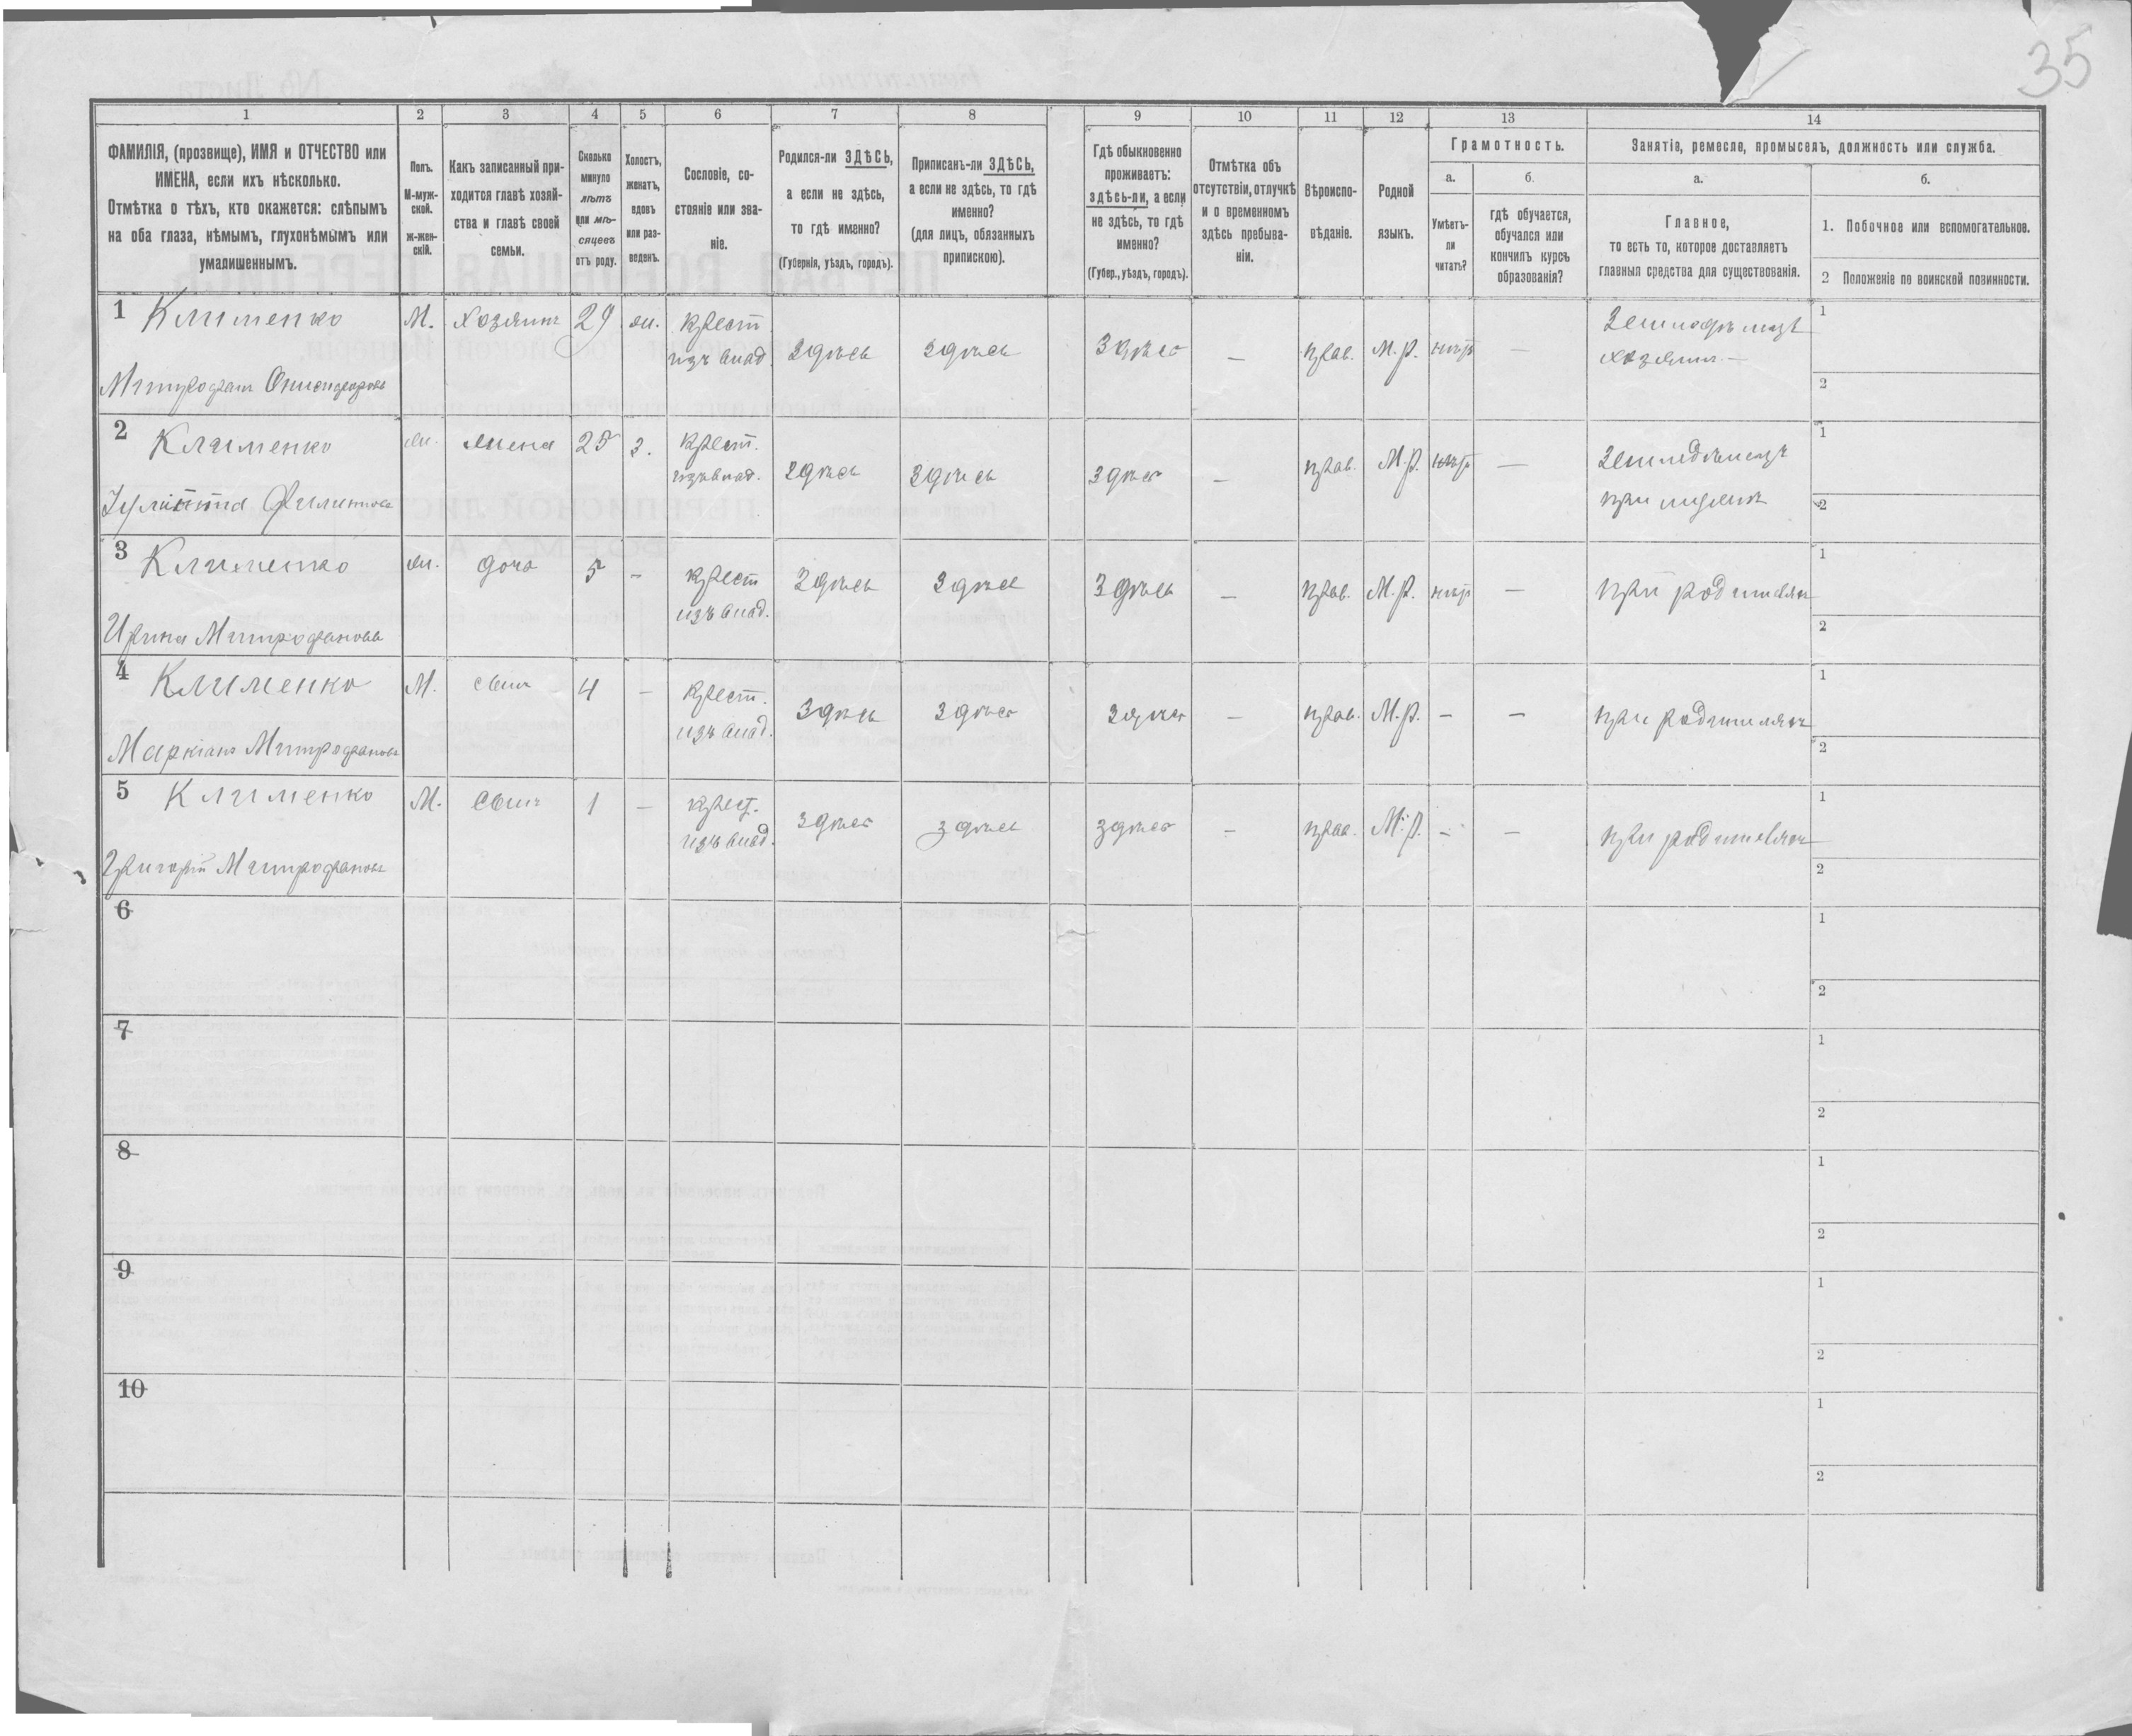 35
1 2 3 4 5 6 7 8 9 10 11 12 13 14
ФАМИЛІЯ, (прозвище), ИМЯ и ОТЧЕСТВО или
ИМЕНА, если ихъ нѣсколько.
Отмѣтка о тѣхъ, кто окажется: слѣпымъ
на оба глаза, нѣмымъ, глухонѣмымъ или
умалишеннымъ.
Полъ.
М-муж-
ской.
Ж-жен-
скій.
Какъ записанный при-
ходится главѣ хозяй-
ства и главѣ своей
семьи.
Сколько
минуло
лѣтъ
или мѣ-
сяцевъ
отъ роду.
Холостъ,
женатъ,
вдовъ
или раз-
веденъ.
Сословіе, со-
стояніе или зва-
ніе.
Родился-ли ЗДѢСЬ,
а если не здѣсь,
то гдѣ именно?
(Губернія, уѣздъ, городъ).
Приписанъ-ли ЗДѢСЬ,
а если не здѣсь, то гдѣ
именно?
(для лицъ, обязанныхъ
припискою).
Гдѣ обыкновенно
проживаетъ:
здѣсь-ли, а если
не здѣсь, то гдѣ
именно?
(Губер., уѣздъ, городъ).
Отмѣтка объ
отсутствіи, отлучкѣ
и о временномъ
здѣсь пребыва-
ніи.
Вѣроиспо-
вѣданіе.
Родной
языкъ.
Грамотность.
а.
Умѣетъ-
ли
читать?
б.
гдѣ обучается,
обучался или
кончилъ курсъ
образованія?
Занятіе, ремесло, промыселъ, должность или служба.
а.
Главное,
то есть то, которое доставляетъ
главныя средства для существованія.
б.
1. Побочное или вспомогательное.
2 Положеніе по воинской повинности.
1 Клименко М. Хозяинъ 29 ж. Крест.
изъ влад. здѣсь здѣсь здѣсь — прав. М.р. нѣтъ — Земледѣлецъ
хозяинъ —
Митрофанъ
1
2
2 Клименко ж. жена 25 з. Крест.
изъ влад. здѣсь здѣсь здѣсь — прав. М.р. нѣтъ — Земледѣлецъ
при мужѣ
Іулитта Филипова
1
2
3 Клименко ж. дочь 5 — Крест
изъ влад. здѣсь здѣсь здѣсь — прав. М.р. нѣтъ — при родителяхъ
Ирина Митрофанова
1
2
4 Клименко М. сынъ 4 — Крест.
изъ влад. здѣсь здѣсь здѣсь — прав. М.р. — — при родителяхъ
Маркіанъ Митрофановъ
1
2
5 Клименко М. сынъ 1 — Крест.
изъ влад. здѣсь здѣсь здѣсь — прав. М.р. — — при родителяхъ
Григорій Митрофановъ
1
2
6
1
2
7
1
2
8
1
2
9
1
2
10
1
2